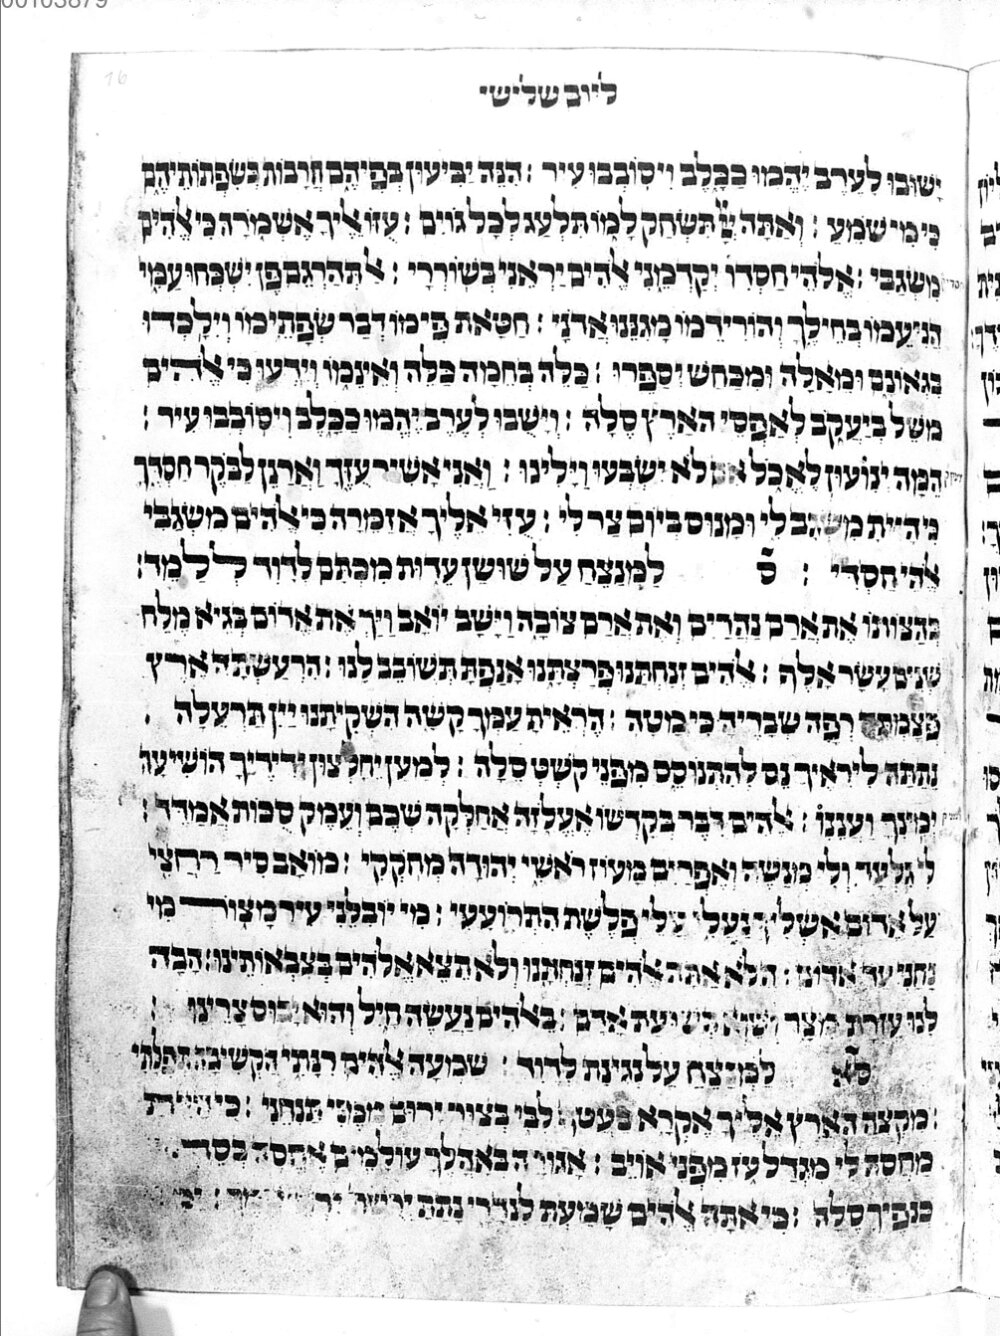 00103879
16
ליום שלישי
ישובו לערב יהמו ככלב ויסובבו עיר : הנה יביעון בפיהם חרבות בשפתותיהם
כי מי שמע : ואתה תשחק למו תלעג לכל גוים : עוזו אליך אשמרה כי אלהים
משגבי : אלהי חסדו יקדמני אלהים יראני בשוררי : אל תהרגם פן ישכחו עמי
הניעמו בחילך והורידמו מגננו אדני : חטאת פימו דבר שפתימו וילכדו
בגאונם ומאלה ומכחש יספרו : כלה בחמה כלה ואינמו וידעו כי אלהים
משל ביעקב לאפסי הארץ סלה : וישובו לערב יהמו ככלב ויסובבו עיר :
המה ינועון לאכל אם לא ישבעו וילינו : ואני אשיר עזך וארנן לבקר חסדך
כי היית משגב לי ומנוס ביום צר לי : עזי אליך אזמרה כי אלהים משגבי
אלהי חסדי : ס למנצח על שושן עדות מכתם לדוד ללמד :
בהצותו את ארם נהרים ואת ארם צובה וישב יואב ויך את אדום בגיא מלח
שנים עשר אלף : אלהים זנחתנו פרצתנו אנפת תשובב לנו : הרעשתה ארץ
פצמתה רפה שבריה כי מטה : הראית עמך קשה השקיתנו יין תרעלה :
נתתה ליראיך נס להתנוסס מפני קשט סלה : למען יחלצון ידידיך הושיעה
ימינך ועננו : אלהים דבר בקדשו אעלזה אחלקה שכם ועמק סכות אמדד :
לי גלעד ולי מנשה ואפרים מעוז ראשי יהודה מחקקי : מואב סיר רחצי
על אדום אשליך נעלי עלי פלשת התרועעי : מי יובלני עיר מצור מי
נחני עד אדום : הלא אתה אלהים זנחתנו ולא תצא אלהים בצבאותינו : הבה
לנו עזרת מצר ושוא תשועת אדם : באלהים נעשה חיל והוא יבוס צרינו :
סא למנצח על נגינת לדוד : שמעה אלהים רנתי הקשיבה תפלתי
: מקצה הארץ אליך אקרא בעטף לבי בצור ירום ממני תנחני : כי היית
מחסה לי מגדל עז מפני אויב : אגורה באהלך עולמים אחסה בסתר
כנפיך סלה : כי אתה אלהים שמעת לנדרי נתת ירשת